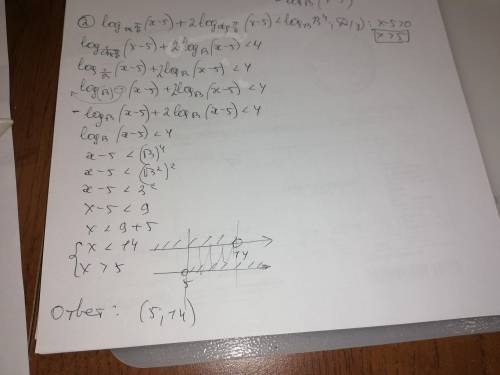 log (x-5) + 2 log (x-5) < log√3 √3⁴; x-5>0
x>5
(x-5) + 2 log√3 (x-5) < 4
log 1/√3 (x-5) + 2 log√3 (x-5) < 4
(x-5) + 2 log√3 (x-5) < 4
- log√3 (x-5) + 2 log√3 (x-5) < 4
log√3 (x-5) < 4
x-5 < (√3)⁴
x-5 < (√3²)²
x-5 < 3²
x-5 < 9
x < 9+5
{ x < 14
x > 5
14
5
Ответ: (5, 14)